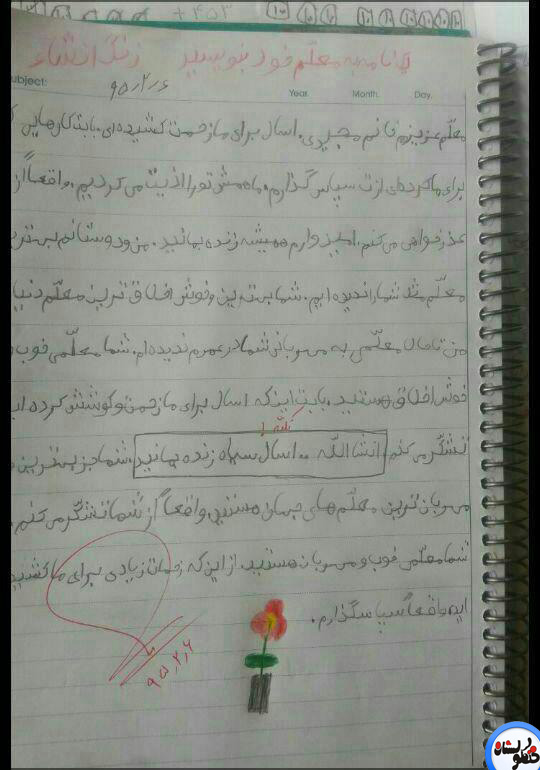 + ۴۵۳
یک نامه به معلم خود بنویسید زنگ انشاء
ubject: ۹۵٫۲٫۶ Year. Month. Day.
معلّم عزیزم خانم مجیدی. امسال برای ما زحمت کشیده‌ای. بابت کارهایی
برای ما کرده‌ای ازت سپاس گذارم. ما همش تو را اذیت می کردیم. واقعاً از
عذرخواهی می کنم. امیدوارم همیشه زنده بمانید. من و دوستانم بهترین
معلّم مثل شما را ندیده ایم. شما بهترین و خوش اخلاق ترین معلّم دنیا
من تا حالا معلّمی به مهربانی شما در عمرم ندیده ام. شما معلّمی خوب و
خوش اخلاق هستید. بابت این که امسال برای ما زحمت و کوشش کرده اید
تشکّر می کنم. انشاالله ۲۰۰ سال سیاه زنده بمانید. شما جز بهترین
مهربان ترین معلّم های جهان هستید. واقعاً از شما تشکّر می کنم.
شما معلّمی خوب و مهربان هستید. از این که زحمات زیادی برای ما کشیده
ایم واقعاً سپاسگذارم.
۹۵٫۲٫۶